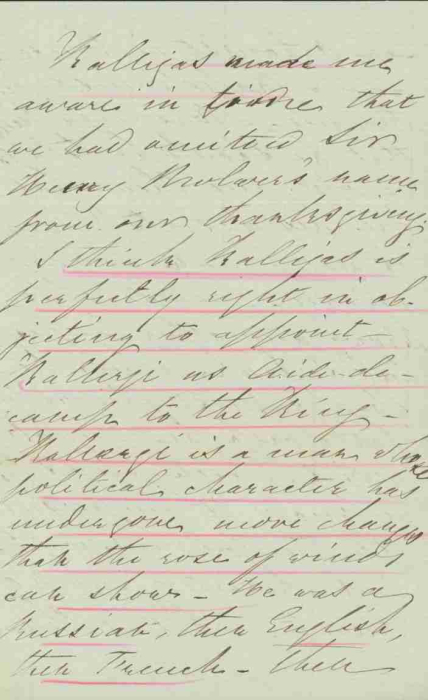 Kalligas made me
aware in time that
we had omitted Sir
Henry Bulwer's name
from our thanksgiving.
I think Kalligas is
perfectly right in ob-
jecting to appoint
Kallergi as Aide-de-
camp to the King -
Kallergi is a man whose
political character has
undergone more changes
than the rose of winds
can show - He was a
Russian, then English,
then French - then